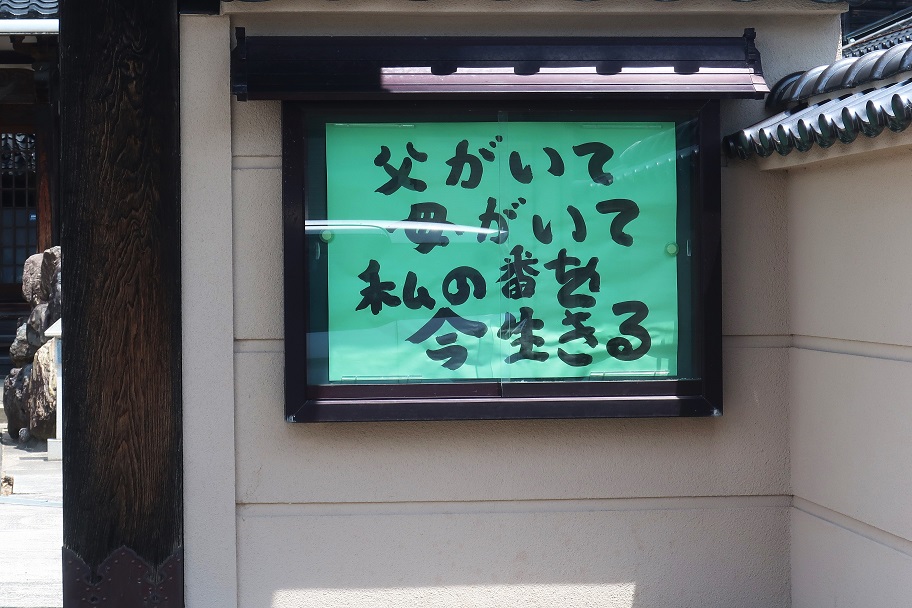 父がいて
母がいて
私の番を
今生きる